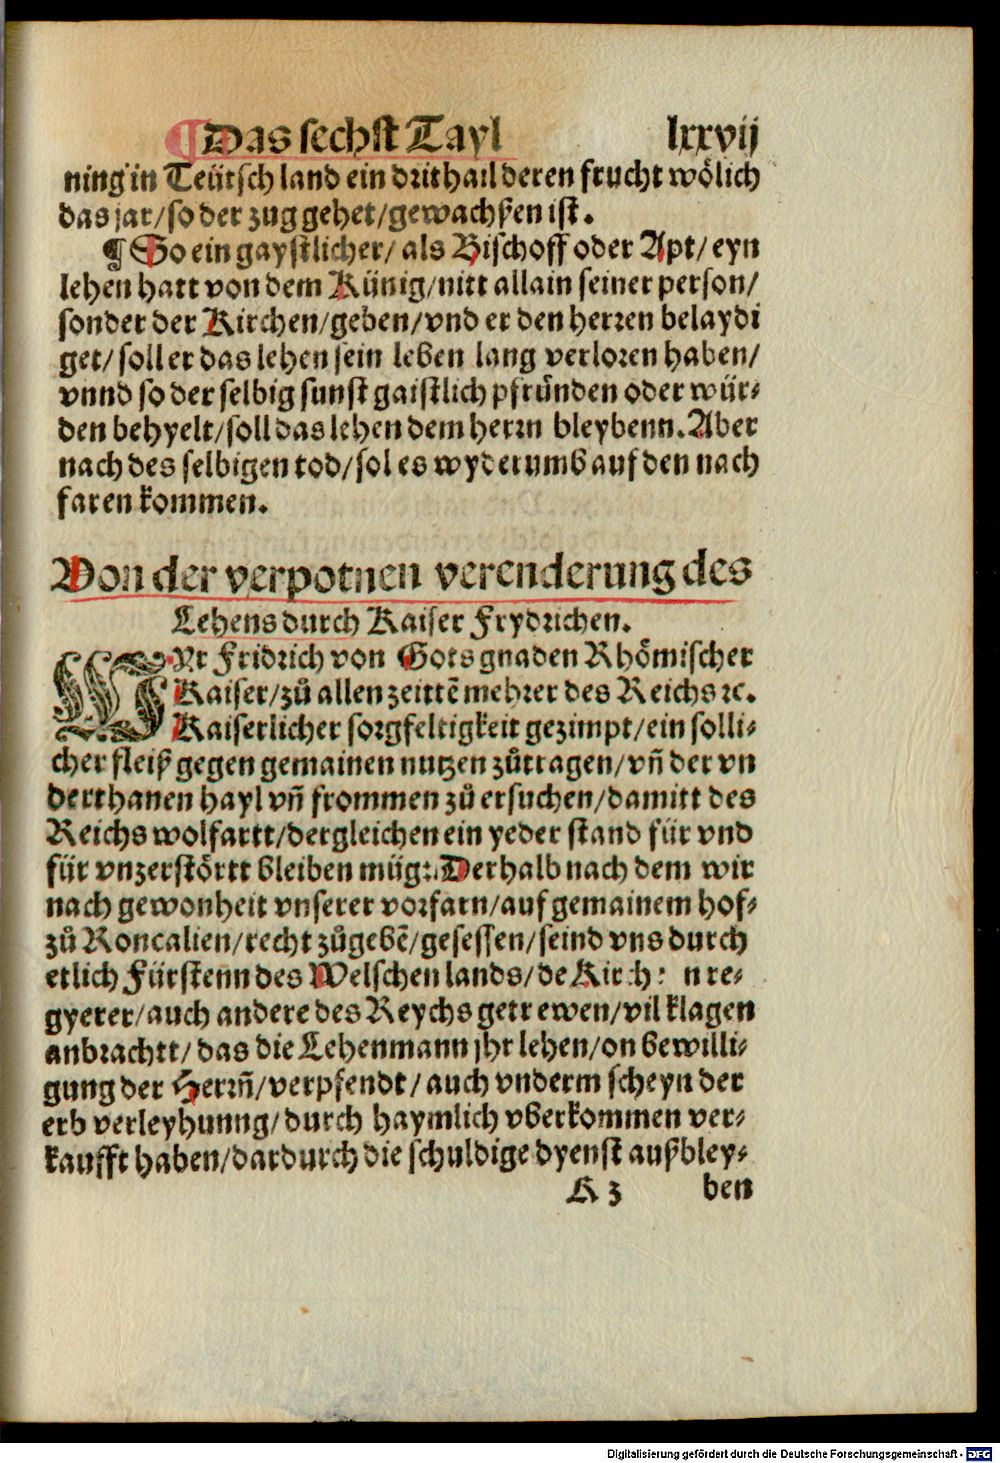 ¶ Das sechst Tayl lxxvij
ning in Teütsch land ein drithail deren frucht wölich
das jar/so der zug gehet/gewachsen ist.
¶ So ein gaystlicher/ als Bischoff oder Apt/ eyn
lehen hatt von dem Künig/nitt allain seiner person/
sonder der Kirchen/geben/vnd er den herren belaydi
get/ soll er das lehen sein leben lang verloren haben/
vnnd so der selbig sunst gaistlich pfründen oder wür⸗
den behyelt/soll das lehen dem herrn bleybenn. Aber
nach des selbigen tod/sol es wyderumb auf den nach
faren kommen.
Von der verpotnen verenderung des
Lehens durch Kaiser Frydrichen.
WYr Fridrich von Gots gnaden Rhömischer
Kaiser/zů allen zeittē mehrer des Reichs ꝛc.
Kaiserlicher sorgfeltigkeit gezimpt/ein solli⸗
cher fleiß gegen gemainen nutzen zůtragen/vñ der vn
derthanen hayl vñ frommen zů ersuchen/damitt des
Reichs wolfartt/dergleichen ein yeder stand für vnd
für vnzerstörtt bleiben müg. Derhalb nach dem wir
nach gewonheit vnserer vorfarn/auf gemainem hof⸗
zů Roncalien/recht zůgebē/gesessen/seind vns durch
etlich Fürstenn des Welschen lands/de re⸗
gyerer/auch andere des Reychs getrewen/vil klagen
anbrachtt/ das die Lehenmann jhr lehen/on bewilli⸗
gung der Herrñ/verpfendt/ auch vnderm scheyn der
erb verleyhunng/durch haymlich vberkommen ver⸗
kaufft haben/dardurch die schuldige dyenst außbley⸗
K 3 ben
Digitalisierung gefördert durch die Deutsche Forschungsgemeinschaft - DFG